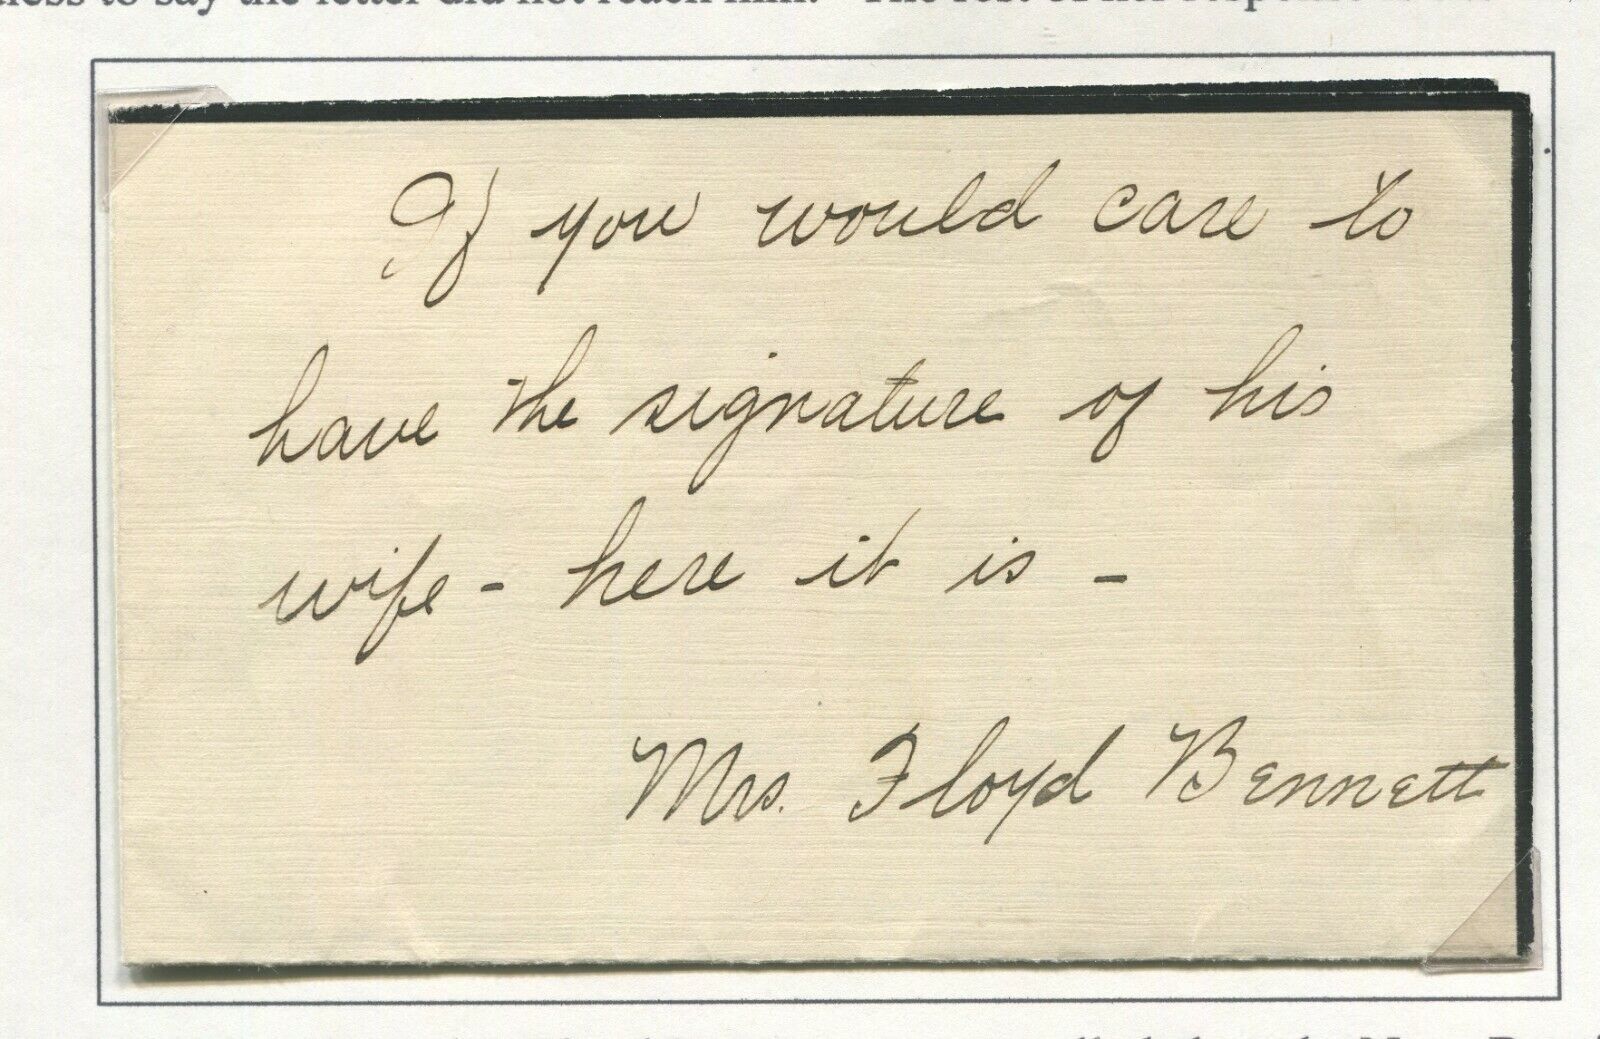 to say the letter did not reach him. The rest of her response is
If you would care to
have the signature of his
wife - here it is -
Mrs. Floyd Bennett